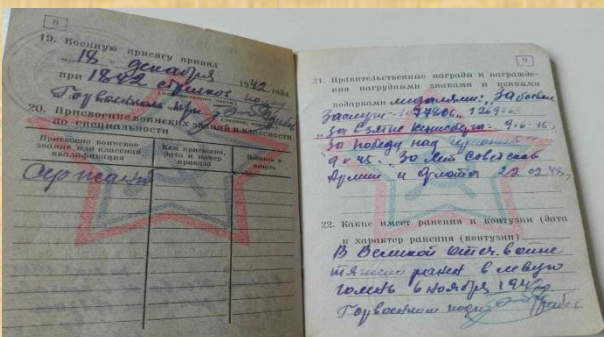 8
19. Военную присягу принял
"18" декабря 1942 года
при 1842
Горвоенком
20. Присвоение воинских званий и классности
по специальности
Присвоено воинское звание или классная квалификация
Кем присвоено, дата и номер приказа
сержант
9
21. Правительственные награды и награжде-
ния нагрудными знаками и ценными
подарками медалями: "За боевые
заслуги"
"За взятие Кенигсберга"
За победу над Германией
9.5.45. 30 лет Советской
Армии и Флота 22.02.48
22. Какие имеет ранения и контузии (дата
и характер ранения (контузии)
В Великой отеч. войне
тяжело ранен в левую
голень 6 ноября
Горвоенком